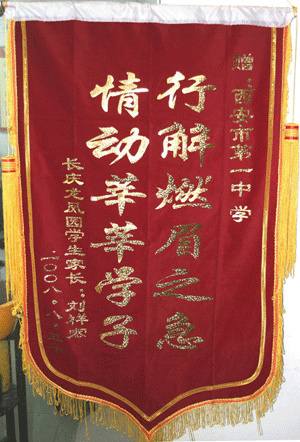 赠：西安市第一中学
行解燃眉之急
情动莘莘学子
长庆龙凤园学生家长：刘祥宏
二〇〇八.八.